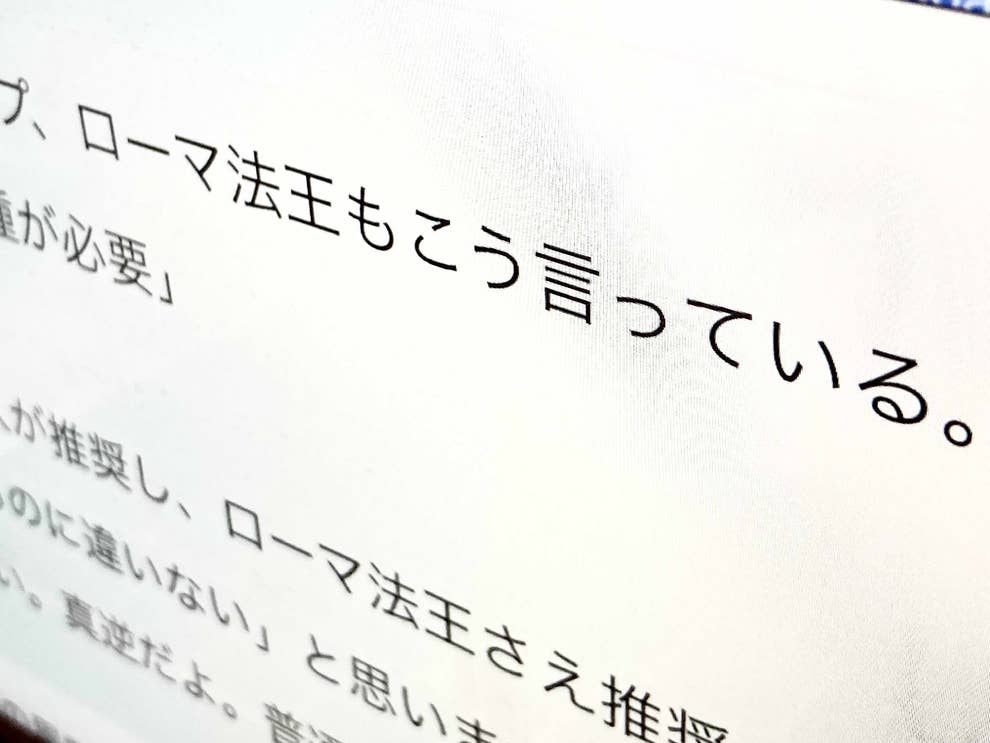 プ、ローマ法王もこう言っている。
種が必要」
が推奨し、ローマ法王さえ推奨
ものに違いない」と思いま
い。真逆だよ。普通